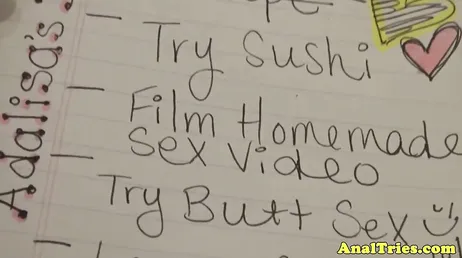 Adalisa's
Try Sushi
Film Homemade
Sex Video
Try Butt Sex
AnalTries.com